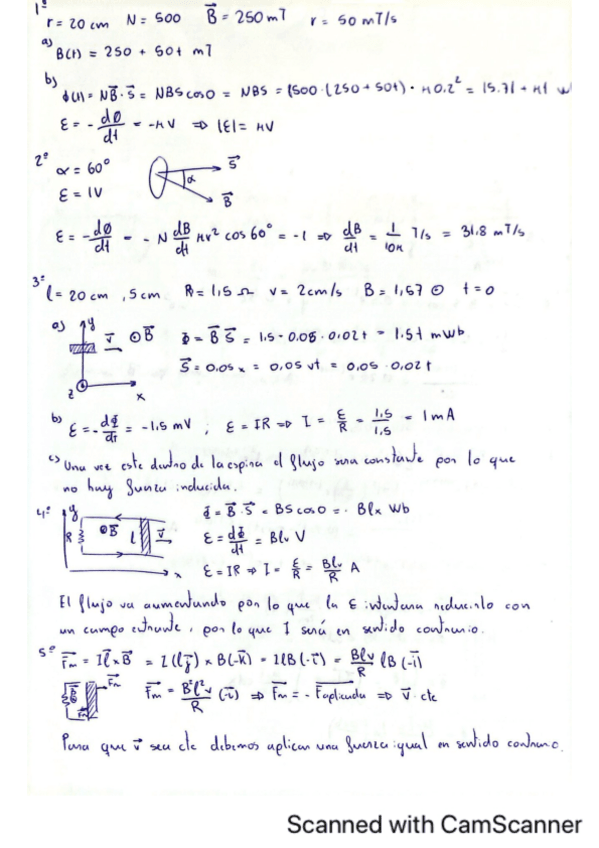 1º
r = 20 cm N = 500 B⃗ = 250 mT r = 50 mT/s
a)
B(t) = 250 + 50t mT
b)
ϕ(t) = NB⃗·S⃗ = NBS cos0 = NBS = (500·(250+50t)·π0.2² = 15.71 + πt w
ε = - dØ/dt = -π V ⇒ |ε| = π V
2º
α = 60º
ε = 1V
S⃗
α
B⃗
ε = - dØ/dt = - N dB/dt πr² cos 60º = -1 ⇒ dB/dt = 1/10π T/s = 31.8 mT/s
3º
l = 20 cm, 5 cm R = 1,5 Ω v = 2cm/s B = 1,57 ⊙ t = 0
a) y v⃗ ⊙B⃗ Φ = B⃗ S⃗ = 1.5 · 0.05 · 0.02t = 1.5t mWb
S⃗ = 0.05x = 0,05 vt = 0.05 · 0,02t
z x
b) ε = - dΦ/dt = -1,5 mV ; ε = IR ⇒ I = ε/R = 1,5/1,5 = 1 mA
c) Una vez este dentro de la espira el flujo sera constante por lo que
no hay fuerza inducida.
4º y Φ = B⃗·S⃗ = BS cos0 = · Blx Wb
R ⊙B⃗ l v⃗ ε = dΦ/dt = Blv V
x ε = IR ⇒ I = ε/R = Blv/R A
El flujo va aumentando por lo que la ε intentara reducirlo con
un campo entrante, por lo que I será en sentido contrario.
5º F⃗m = Il⃗ x B⃗ = I(lj⃗) x B(-k⃗) = IlB(-i⃗) = Blv/R lB(-i⃗)
F⃗m F⃗m = B²l²v/R (-i⃗) ⇒ F⃗m = - F⃗aplicada ⇒ v⃗ cte
Para que v⃗ sea cte debemos aplicar una fuerza igual en sentido contrario.
Scanned with CamScanner